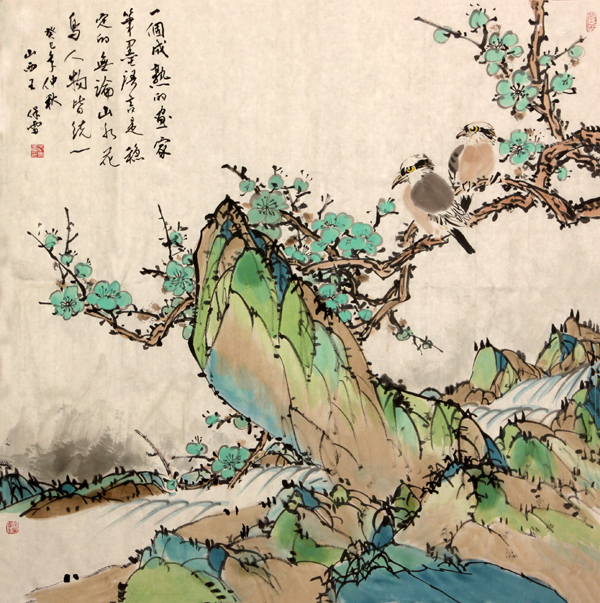 一個成熟的畫家
筆墨語言是穩
定的無論山水花
鳥人物皆統一
癸巳年仲秋
山西王